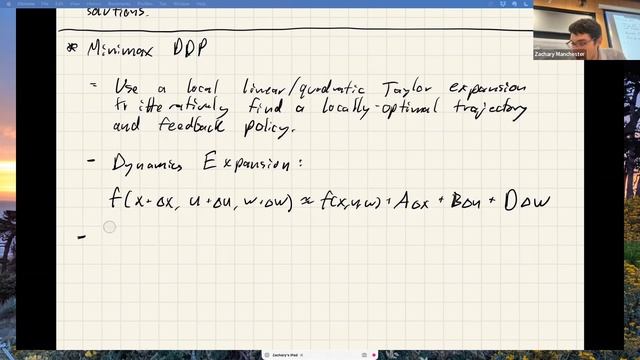 solutions.
* Minimax DDP
- Use a local linear/quadratic Taylor expansion
to iteratively find a locally-optimal trajectory
and feedback policy.
- Dynamics Expansion:
f(x+Δx, u+Δu, w+Δw) ≈ f(x,u,w) + AΔx + BΔu + DΔw
-
Zachary Manchester
Zachary's iPad